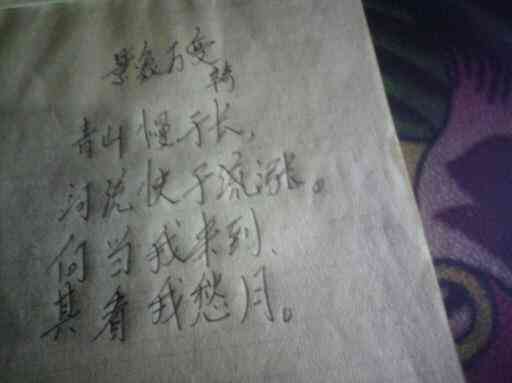 景象万变
转
青山慢于长,
河流快于流涨。
向当我来到、
其看我愁月。